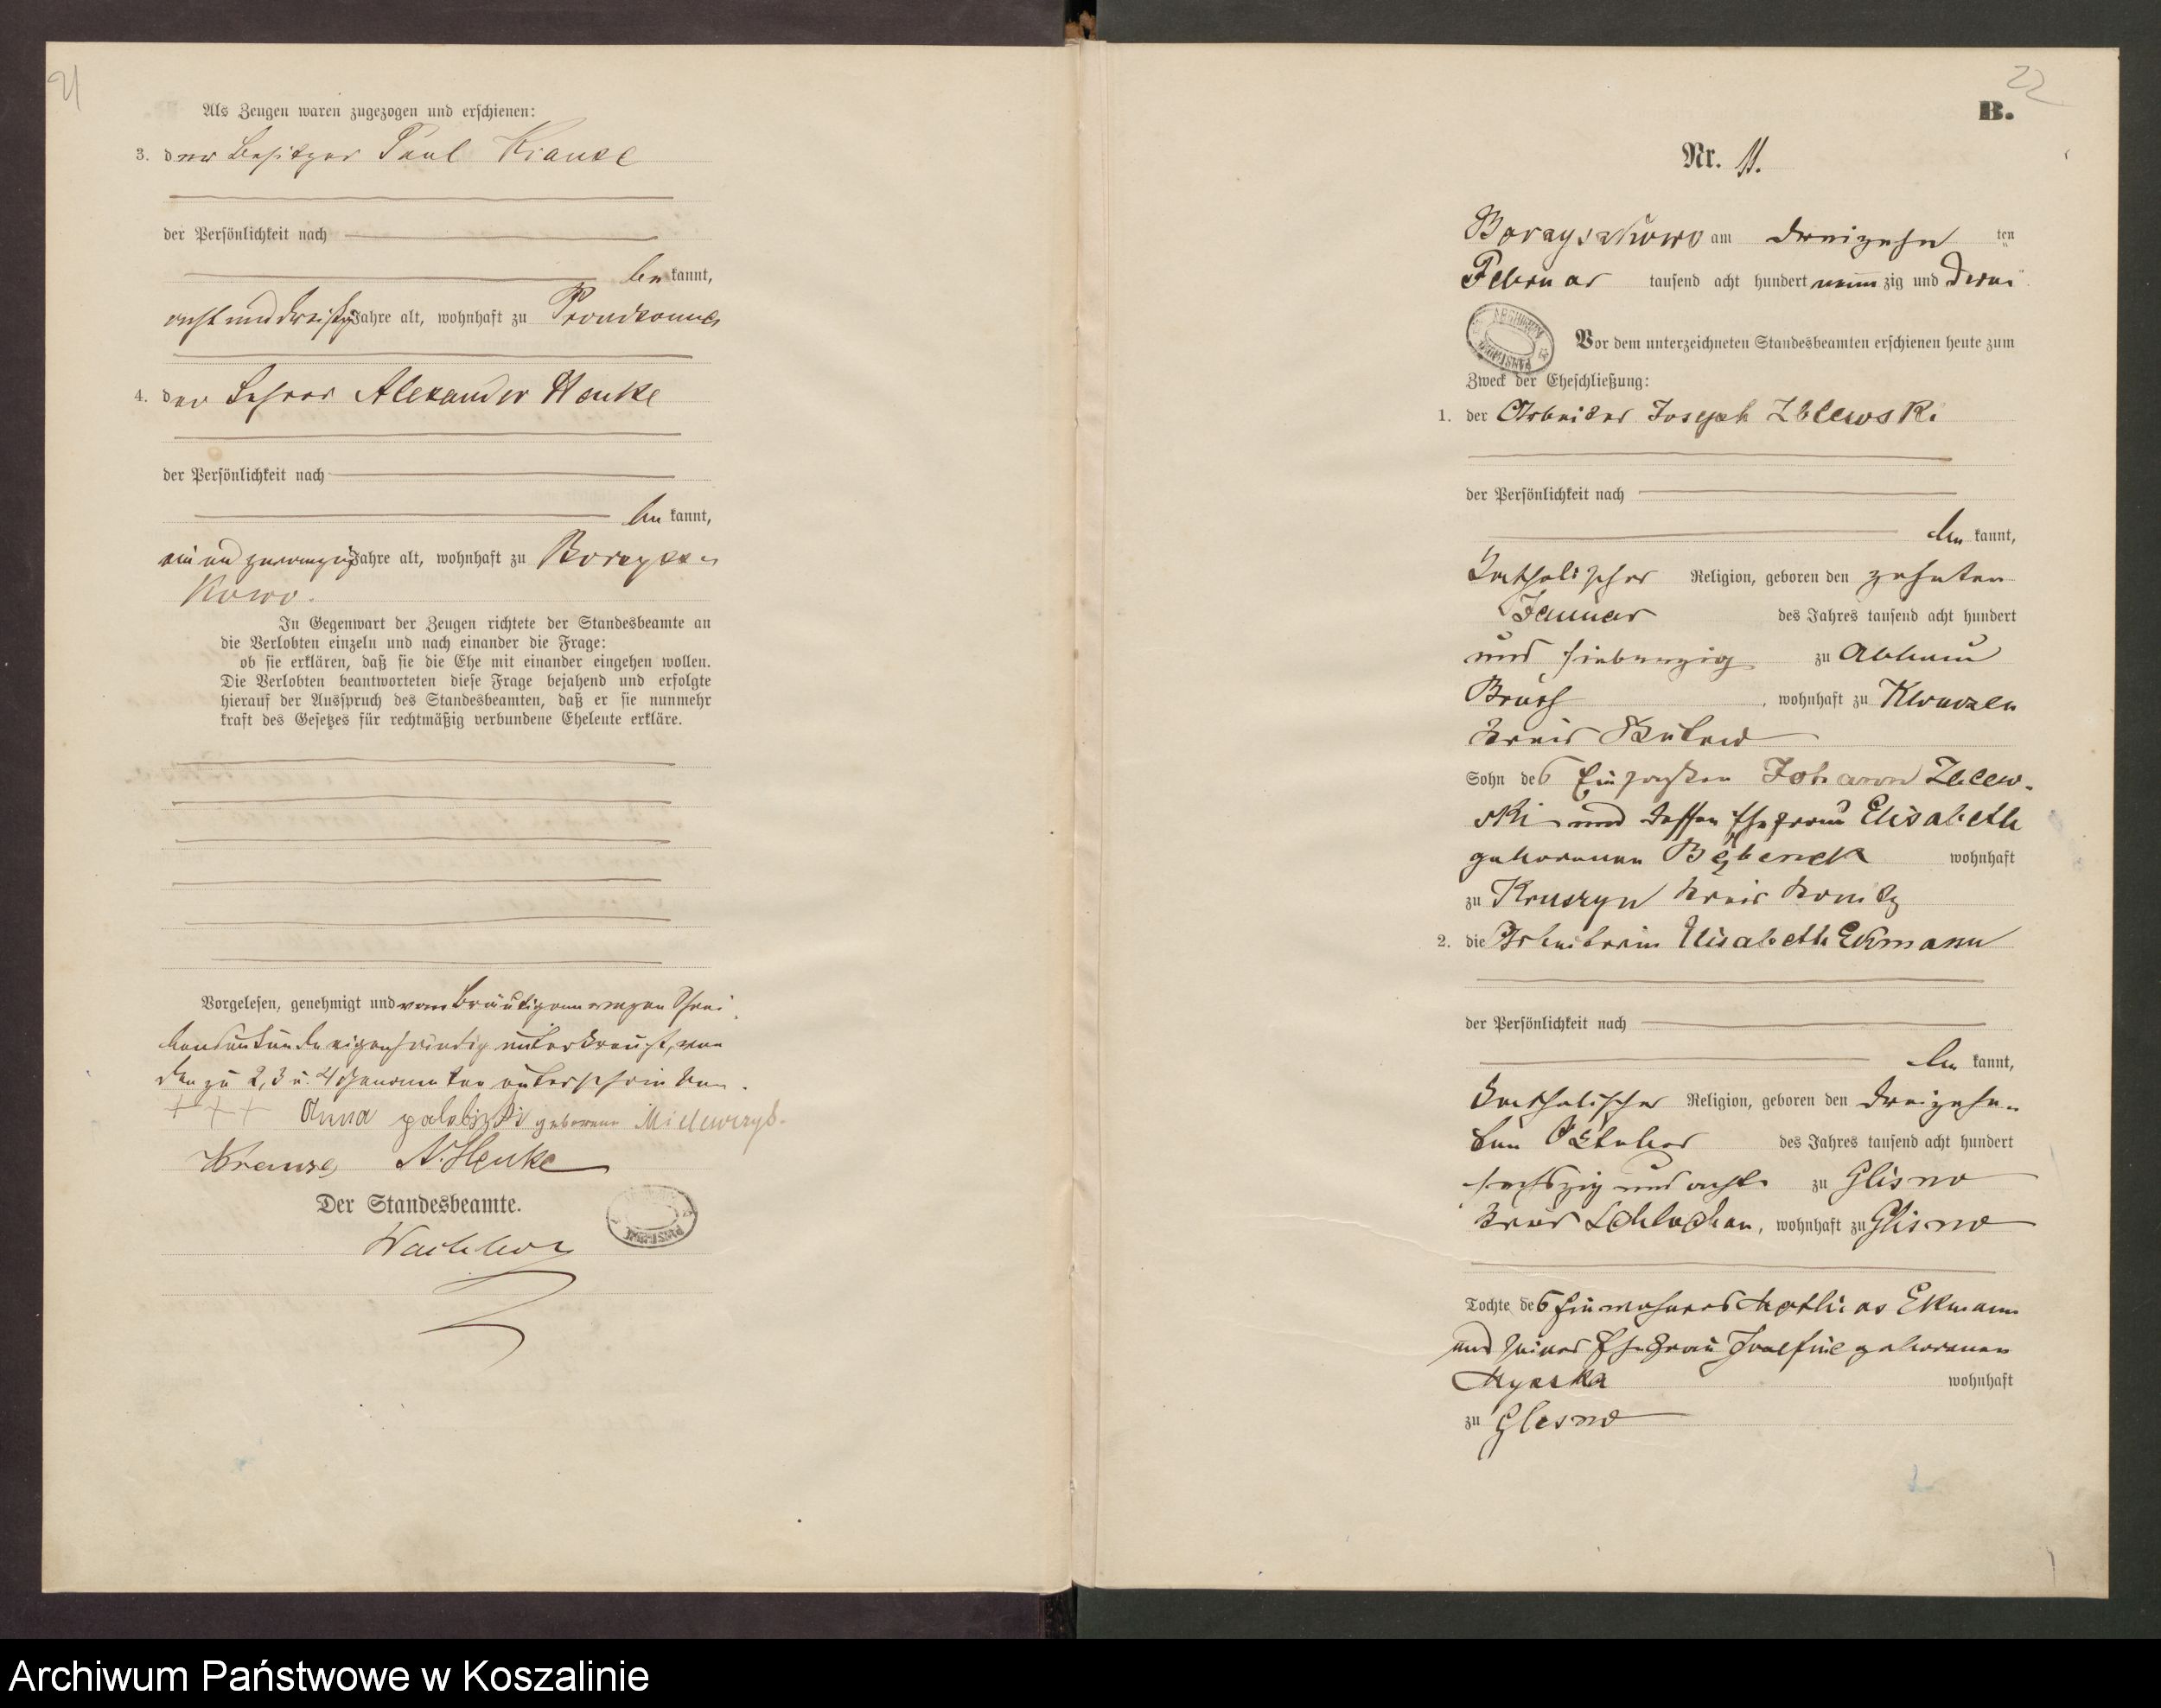 21
Als Zeugen waren zugezogen und erschienen:
3. der Besitzer Paul Krause
der Persönlichkeit nach
be kannt,
acht und dreißig Jahre alt, wohnhaft zu Prondzonna
4. der Lehrer Alexander Henke
der Persönlichkeit nach
be kannt,
ein und zwanzig Jahre alt, wohnhaft zu Borzysz-
kowo.
In Gegenwart der Zeugen richtete der Standesbeamte an
die Verlobten einzeln und nach einander die Frage:
ob sie erklären, daß sie die Ehe mit einander eingehen wollen.
Die Verlobten beantworteten diese Frage bejahend und erfolgte
hierauf der Ausspruch des Standesbeamten, daß er sie nunmehr
kraft des Gesetzes für rechtmäßig verbundene Eheleute erkläre.
Vorgelesen, genehmigt und vom Bräutigam wegen Schrei-
bensunkunde eigenhändig unterkreuzt, von
den zu 2, 3 u. 4 Genannten unterschrieben.
+ + + Anna geborene
Krause A. Henke
Der Standesbeamte.
22
B.
Nr. 11.
Borzyszkowo am dreizehn ten
Februar tausend acht hundert neun zig und drei
Vor dem unterzeichneten Standesbeamten erschienen heute zum
Zweck der Eheschließung:
1. der Arbeiter Joseph Zblewski
der Persönlichkeit nach
be kannt,
katholischer Religion, geboren den zehnten
Januar des Jahres tausend acht hundert
und siebenzig zu Abbau
Bruss, wohnhaft zu
Kreis Bütow
Sohn des Johann Zblew-
ski und dessen Ehefrau Elisabeth
geborenen wohnhaft
zu Kruszyn Kreis Konitz
2. die Arbeiterin Elisabeth Ekmann
der Persönlichkeit nach
be kannt,
katholischer Religion, geboren den dreizehn-
ten Oktober des Jahres tausend acht hundert
sechszig und acht zu Glisno
Kreis Schlochau, wohnhaft zu Glisno
Tochter des Einwohners Mathias Ekmann
und seiner Ehefrau Josefine geborenen
wohnhaft
zu Glisno
Archiwum Państwowe w Koszalinie